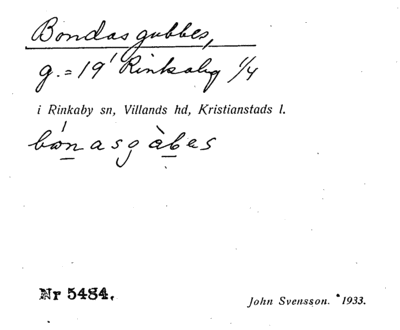 Bondasgubbes,
g. = 19¹ Rinkaby 1/4
i Rinkaby sn, Villands hd, Kristianstads l.
bónasgàbes
Nr 5484.
John Svensson. 1933.